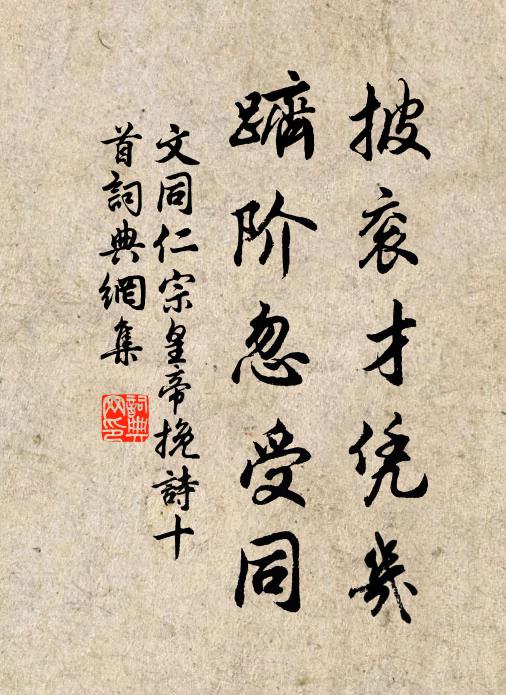 披衮才凭幾
躋阶忽受同
文同仁宗皇帝挽詩十
首詞典網集
詞典
网印